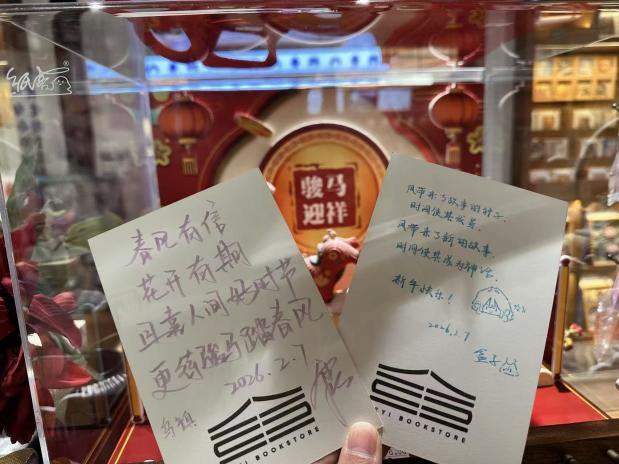 骏马
迎祥
春风有信
花开有期
且嘉人间好时节
更骏马踏春风
2026.2.7
乌镇
YI BOOKSTORE
风带来了故事的种子,
时间使其发芽.
风带来了新的故事,
时间使其成为神话.
新年快乐!
2026.2.7
盒子
YI BOOKSTORE